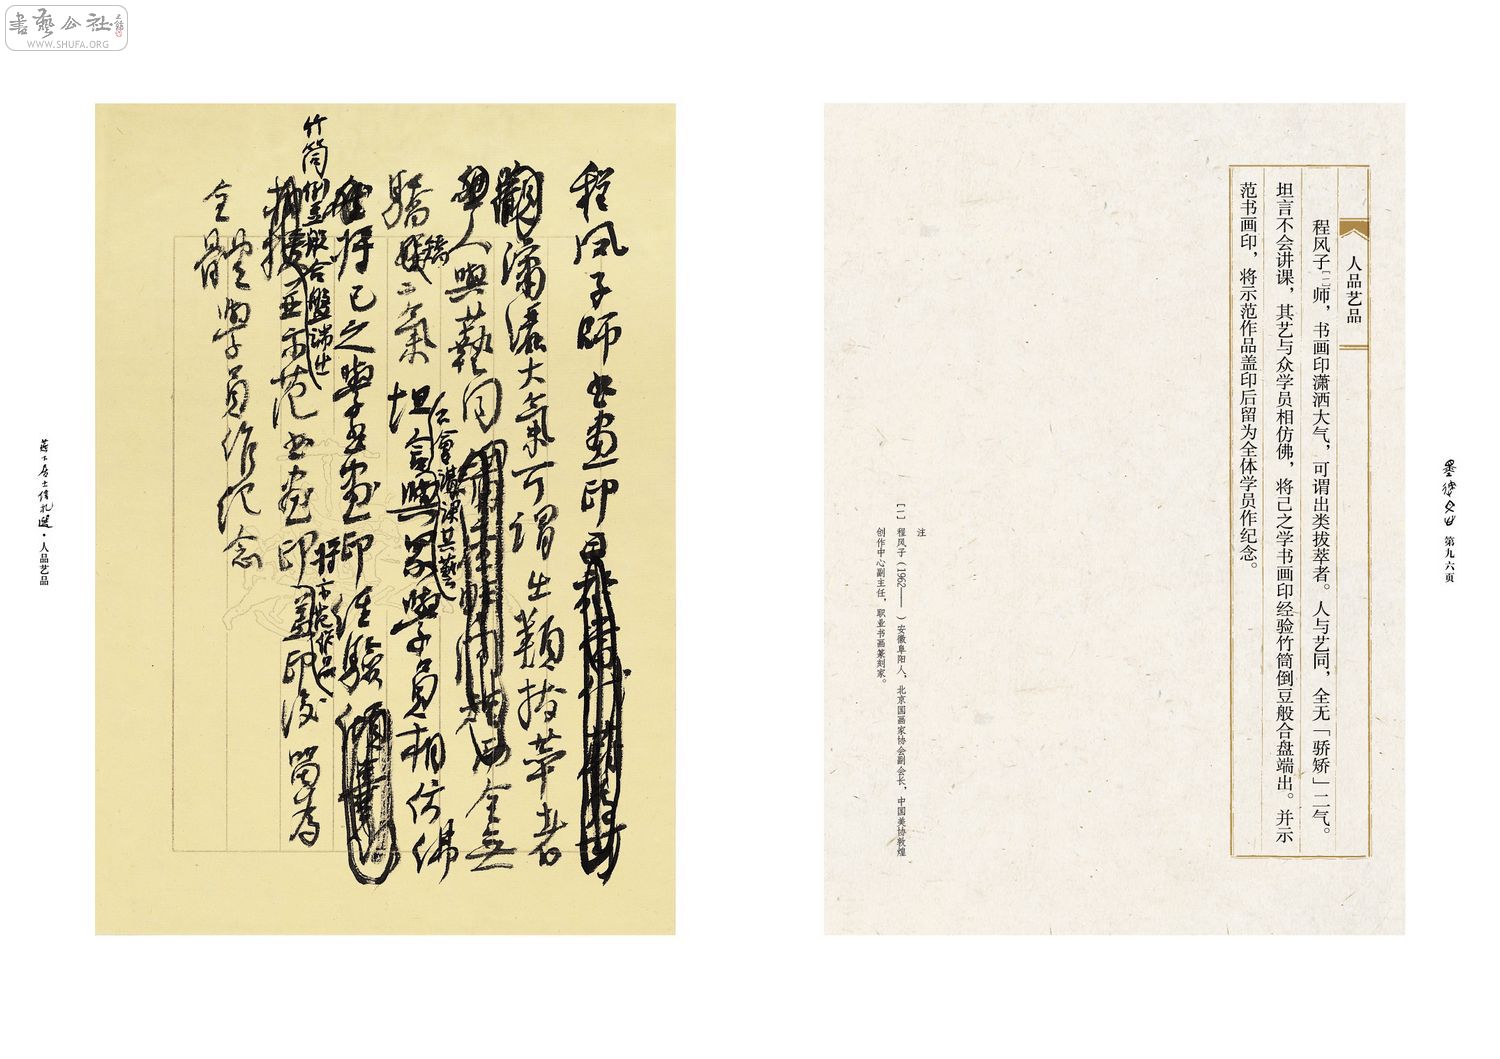 書藝公社
WWW.SHUFA.ORG
人品艺品
程风子[一]师，书画印潇洒大气，可谓出类拔萃者。人与艺同，全无「骄矫」二气。
坦言不会讲课，其艺与众学员相仿佛，将己之学书画印经验竹筒倒豆般合盘端出。并示
范书画印，将示范作品盖印后留为全体学员作纪念。
注
[一] 程风子（1962—— ）安徽阜阳人，北京国画家协会副会长，中国美协敦煌
创作中心副主任，职业书画篆刻家。
第九六页
程风子師书画印
瀟灑大氣可谓出類拔萃者
人與藝同
全無
驕矯二氣 坦言與眾學員相仿佛
不會講課其藝
将己之學书画印经驗
竹筒倒豆般合盤端出
并示范书画印盖印後留為
将示范作品
全體學員作纪念
居士信札選·人品艺品